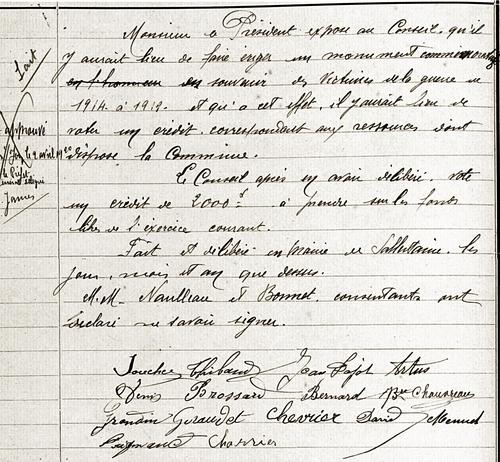 Monsieur le Président expose au Conseil, qu'il
y aurait lieu de faire ériger un monument commémoratif
en souvenir des victimes de la guerre de
1914 à 1919. et qu'à cet effet, il y aurait lieu de
voter un crédit correspondant aux ressources dont
dispose la Commune.
Le Conseil après en avoir délibéré, vote
un crédit de 2000f à prendre sur les fonds
libres de l'exercice courant.
Fait et délibéré en mairie de les
jour, mois et an que dessus.
M.M. Naulleau et Bonnet, consentants ont
déclaré ne savoir signer.
approuvé
le Préfet
James
Thibaud Jean Pajot Artus
Denis Brossard Bernard Chauveau
Grondin Giraudet Chevrier David
Charrier